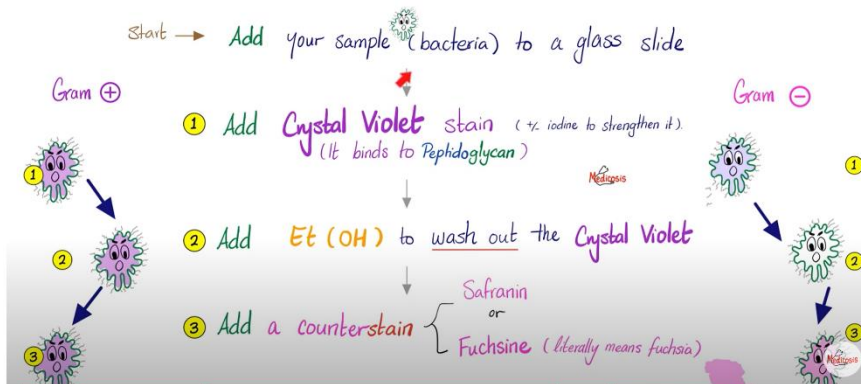 Start → Add your sample (bacteria) to a glass slide
Gram +
Gram -
1 Add Crystal Violet stain (+/- iodine to strengthen it).
(It binds to Peptidoglycan)
Medicosis
1
1
2 Add Et(OH) to wash out the Crystal Violet
2
2
3 Add a counterstain
Safranin
or
Fuchsine (literally means fuchsia)
3
3
Medicosis